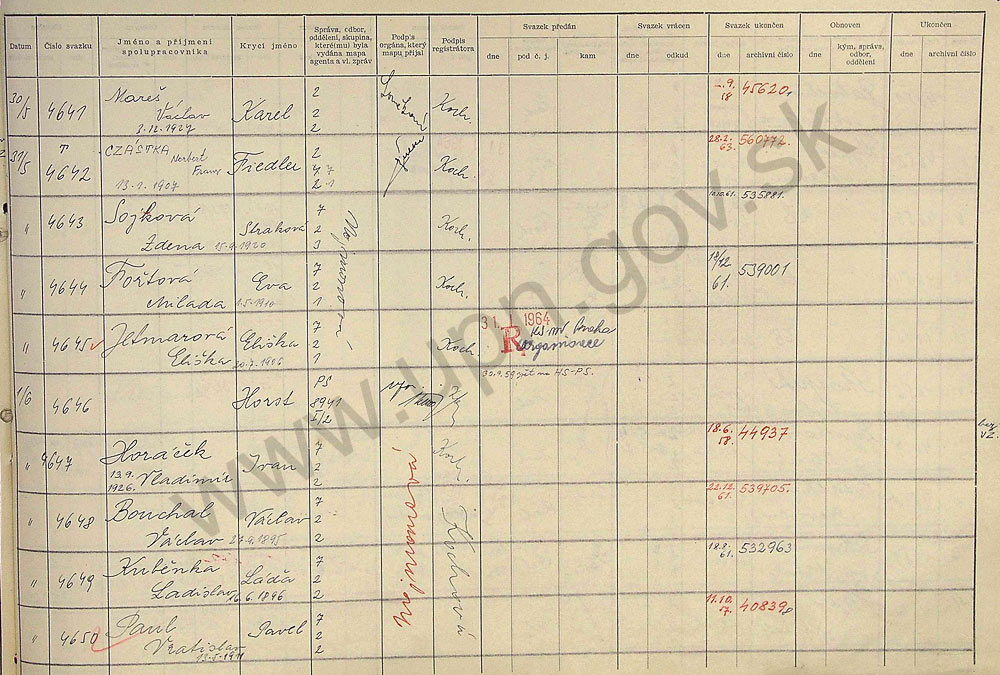 Datum Číslo svazku Jméno a příjmení spolupracovníka Krycí jméno Správa, odbor, oddělení, skupina, které(mu) byla vydána mapa agenta a vl. zpráv Podpis orgána, který mapu přijal Podpis registrátora Svazek předán Svazek vrácen Svazek ukončen Obnoven Ukončen
dne pod č. j. kam dne odkud dne archivní číslo dne kým, správa, odbor, oddělení dne archivní číslo
30/5 4641 Mareš Václav 3.12.1927 Karel 2 2 2 Koch. -.9. 58 45620
31/5 T 4642 CZÁSTKA Norbert Franc 13.1.1907 Fiedler 2 Koch. 28.2. 63. 560772.
" 4643 Sojková Zdena 15.9.1920 Straková 7 2 3 Koch. 535881.
" 4644 Fořtová Milada 1.5.1910 Eva 7 2 1 Koch. 18/12 61. 539001
" 4645 Jetmarová Eliška Eliška 7 2 1 Koch 31. 1964 R KS-MV Praha
30.9.59 zpět na HS-PS.
1/6 4646 Horst PS 8941 I/2
" 4647 Horáček 13.9. 1926. Vladimír Ivan 7 2 2 Koch. 18.6. 58. 44937 bez VZ.
" 4648 Bouchal Václav 27.9.1895 Václav 7 2 2 Kochová 22.12. 61. 539705.
" 4649 Kuběnka Ladislav 26.6.1896 Láďa 7 2 2 18.8. 61. 532963
" 4650 Paul Vratislav 13.5.1911 Pavel 7 2 2 11.10. 40839
www.upn.gov.sk